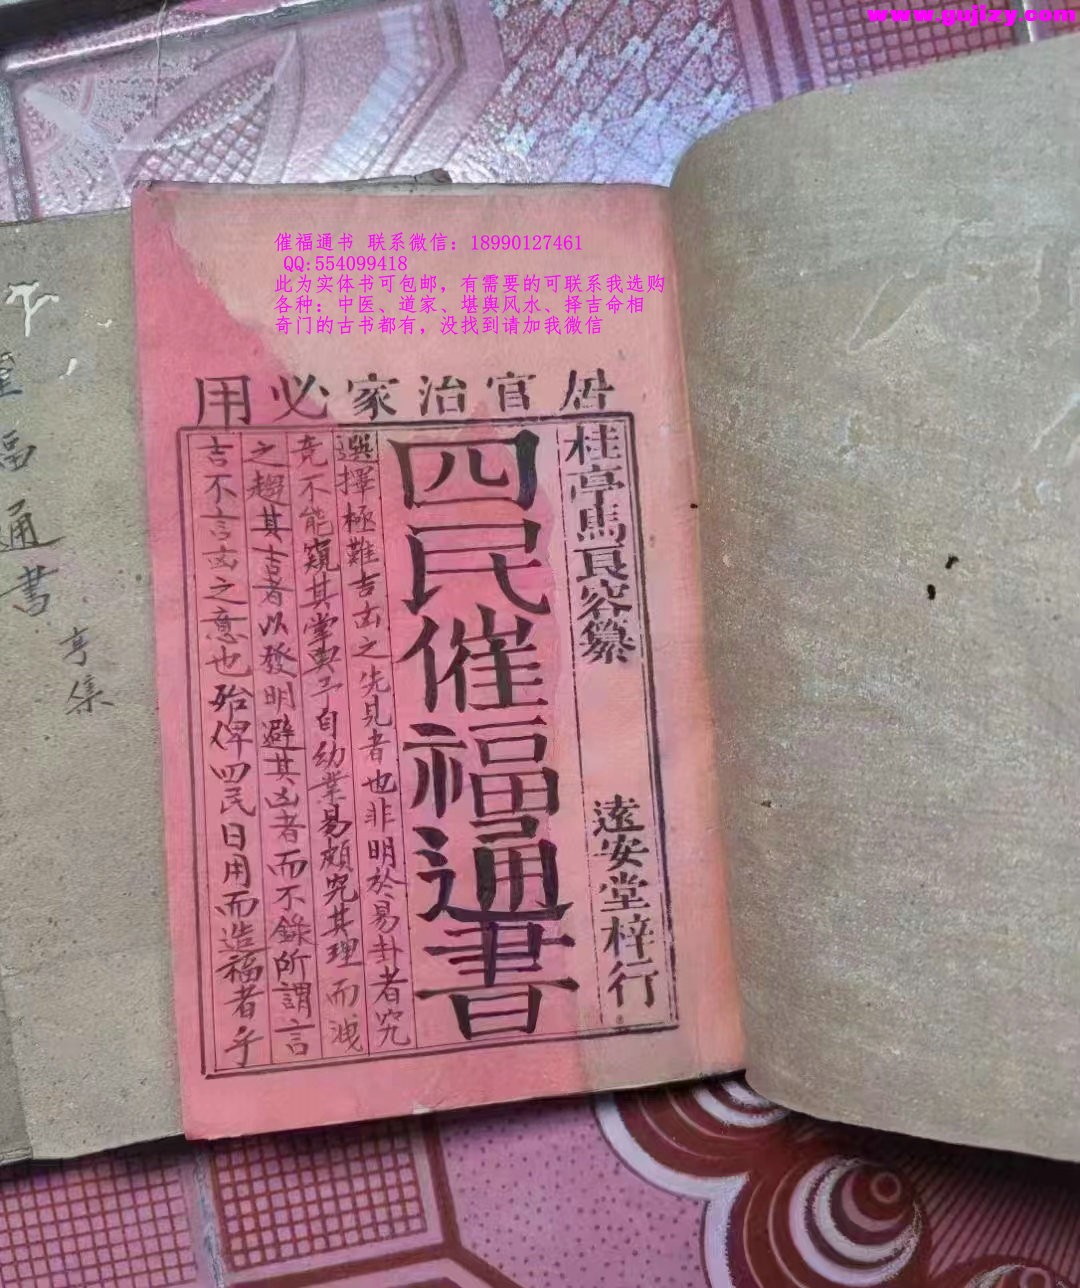 www.gujlzy.com
催福通书 联系微信：18990127461
QQ:554099418
此为实体书可包邮，有需要的可联系我选购
各种：中医、道家、堪舆风水、择吉命相
奇门的古书都有，没找到请加我微信
居官治家必用
桂亭馬良容纂
遠安堂梓行
四民催福通書
選擇極難吉凶之先見者也非明於易卦者究
竟不能窺其自幼業易頗究其理而
之趨其吉者以發明避其凶者而不錄所謂言
吉不言凶之意也殆俾四民日用而造福者乎
福通書
亨集